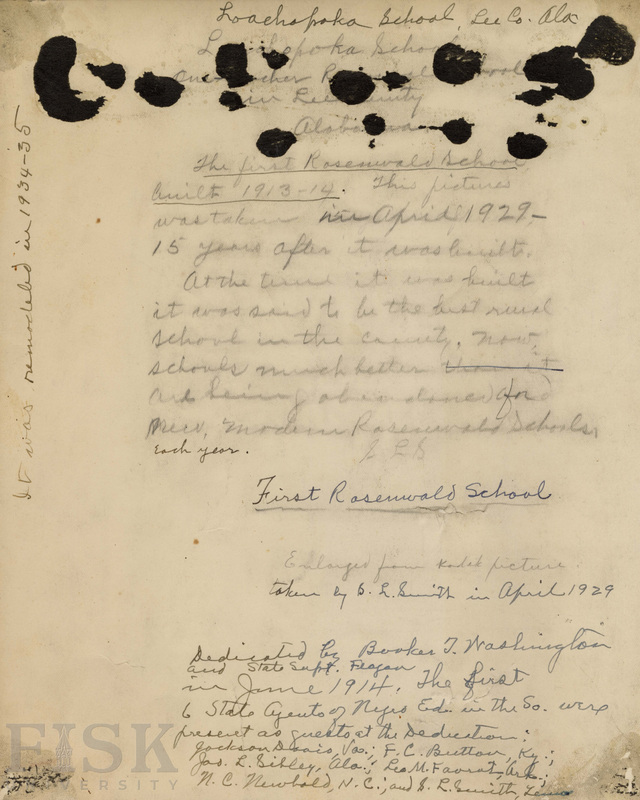 Loachapoka School, Lee Co. Ala
Loachapoka School
one-teacher School
in Lee County
Alabama
The first Rosenwald School
Built 1913-14. This picture
was taken in April, 1929-
15 years after it was built.
At the time it was built
it was said to be the best rural
school in the county. Now
schools much better than it
are being abandoned for
new, modern Rosenwald Schools,
each year.
S L S
First Rosenwald School
Enlarged from kodak picture
taken by S. L. Smith in April 1929
Dedicated by Booker T. Washington
and State Supt. Feagan
in June 1914. The first
6 State Agents of Negro Ed. in the So. were
present as guests at the Dedication:
Jackson Davis, Va.; F.C. Button, Ky.;
Jas. L. Sibley, Ala.; Leo M. Favrot, Ark.;
N.C. Newbold, N.C.; and S. L. Smith, Tenn
It was remodeled in 1934-35
FISK
UNIVERSITY